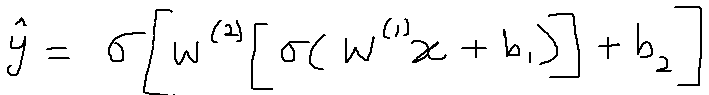 ŷ = σ[W⁽²⁾[σ(W⁽¹⁾x + b₁)] + b₂]